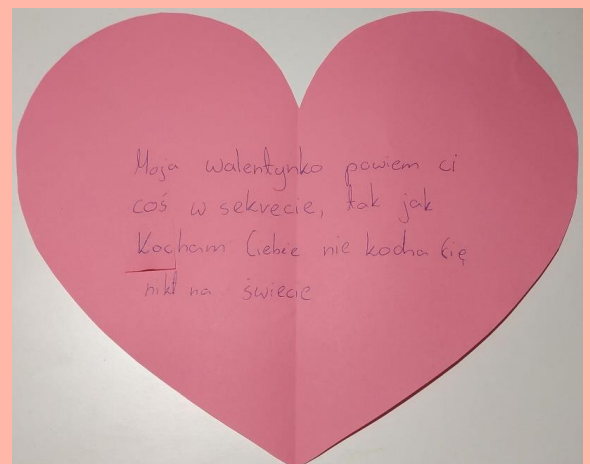 Moja walentynko powiem ci
coś w sekrecie, tak jak
Kocham Ciebie nie kocha Cię
nikt na świecie